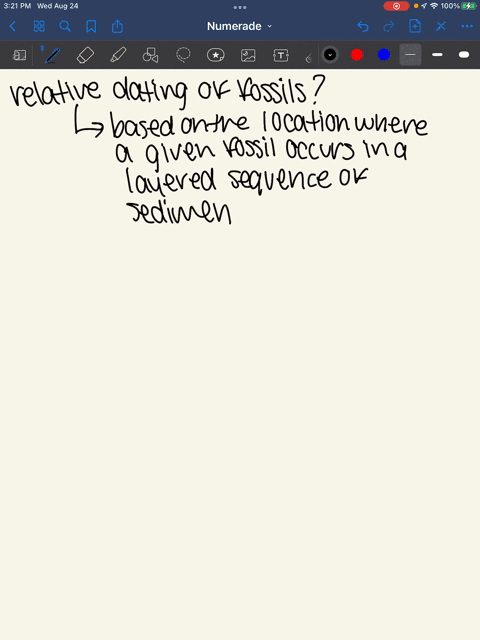 3:21 PM Wed Aug 24
100%
Numerade
relative dating of fossils?
based on the location where
a given fossil occurs in a
layered sequence of
sedimen